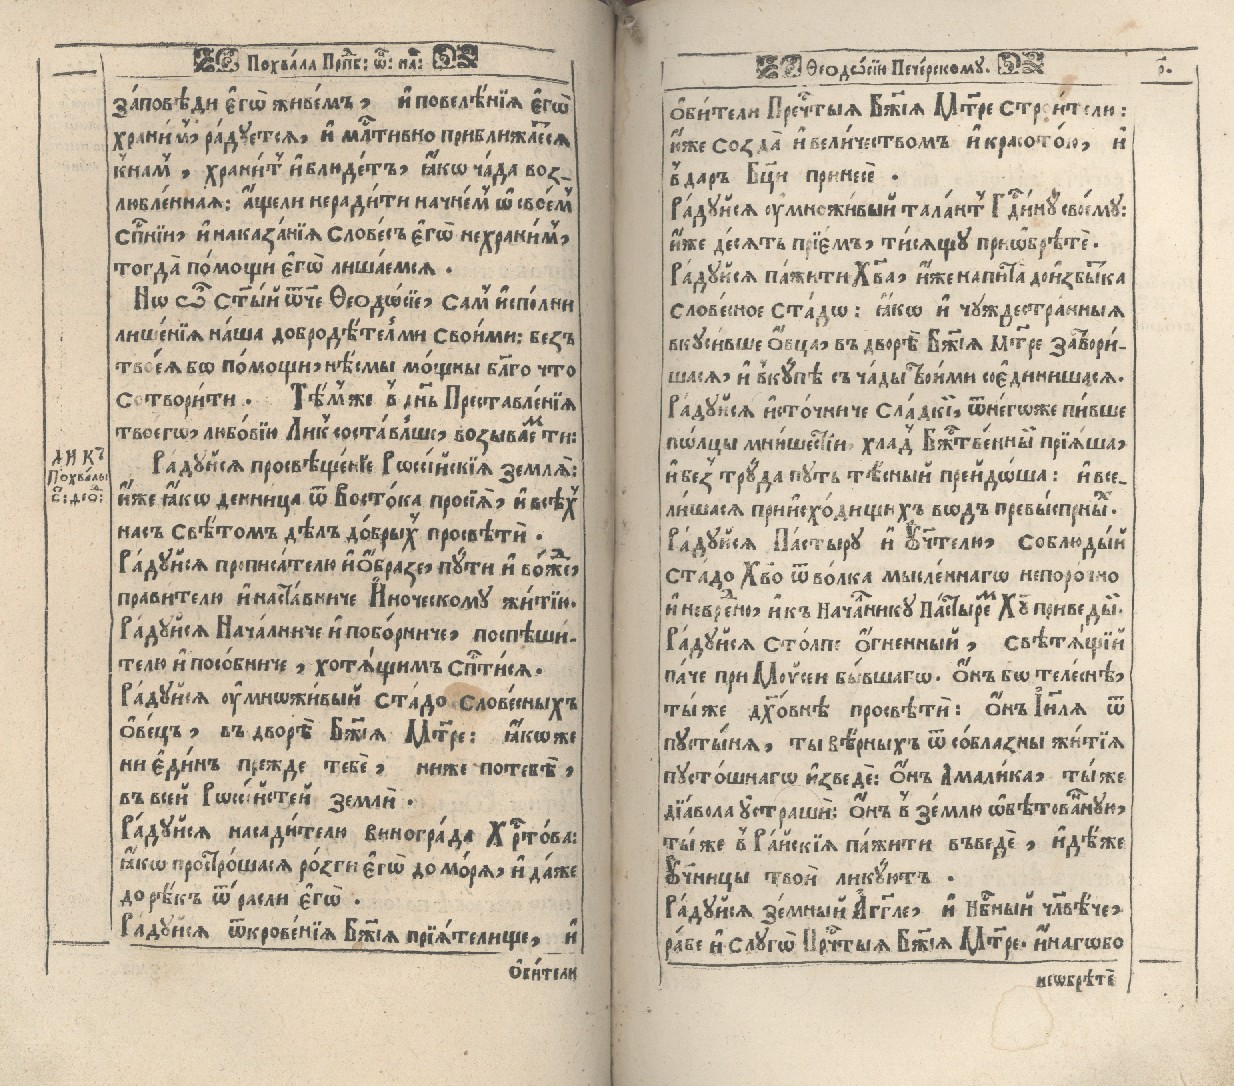 Похва́ла Прпⷣб: ѿ: на́:
за́повѣди є҆гѡ̀ живе́мъ, и҆ повелѣ́нїѧ є҆гѡ̀
храни́м̾, ра́дуетсѧ, и҆ млⷭ҇тивно приближа́єсѧ
к̾нам̾, храни́т̾ и҆ блюде́тъ, ꙗ҆́кѡ ча́да воз_
лю́бленнаѧ: а҆́щели неради́ти начне́м̾ ѡ҆ свое́м̾
сп҃нїи, и҆ наказа́нїѧ слове́съ є҆гѡ̀ нехрани́м̾,
тогда̀ по́мощи є҆гѡ̀ лиша́емсѧ.
Но ѽ ст҃ы́й ѿч҃е Ѳеодѡ́сїе, са́м̾ и҆спо́лни
лише́нїѧ на́ша добродѣ́телми свои́ми: без̾
твоеѧ́ бо по́мощи, нѣ́смы мо́щны бл҃го что
сотвори́ти. Тѣ́м̾же в̾ дн҃ь Преставле́нїѧ
твоегѡ̀, любо́вїи Ли́к̾ соста́вл̾ше, возыва́ем̾ ти:
Ра́дуйсѧ просвѣще́нїе Рѡссі́йскїѧ землѧ̀:
и҆́же ꙗ҆́кѡ денница ѿ Восто́ка просїѧ̀, и҆ всѣ́х̾
нас̾ свѣ́томъ дѣ́лъ до́брых̾ просвѣтѝ.
Ра́дуйсѧ прописа́телю и҆ О҆́бразе, пу́ти и҆ во́же,
правителю и҆ наста́вниче И҆́ноческому житїю̀.
Ра́дуйсѧ Нача́лниче и҆ побо́рниче, поспѣши́-
телю и҆ посо́бниче, хотѧ́щимъ сп҃ти́сѧ.
Ра́дуйсѧ ѹ҆мно́живый ста́до слове́сныхъ
о҆ве́цъ, въ дворѣ̀ Бж҃їѧ Мт҃ре: ꙗ҆́коже
ни є҆ди́нъ прежде тебѐ, ниже по тебѣ̀,
въ всей Рѡссі́йстей землѝ.
Ра́дуйсѧ насади́телю виногра́да Хрⷭ҇то́ва:
ꙗ҆́кѡ простро́шасѧ ро́зги є҆гѡ̀ до мо́рѧ, и҆ да́же
до рѣ́къ ѿрасли є҆гѡ̀.
Ра́дуйсѧ ѿкрове́нїѧ Бж҃їѧ прїѧ́телище, и҆
о҆би́тели
ли́къ
Похва́лы
Ѳеодѡ́сїи Пече́рскому.
о҆би́тели Прчⷭ҇тыѧ Бж҃їѧ Мт҃ре Строи́тели:
и҆́же созда̀ и҆ вели́чествомъ и҆ красото́ю, и҆
в̾ даръ Бц҃и принесѐ.
Ра́дуйсѧ ѹ҆мно́живый тала́нт̾ Гдⷭ҇ину̀ своему̀:
и҆́же де́сѧть прїе́мъ, ти́сѧщу приѡбрѣ́те.
Ра́дуйсѧ па́жити Хв҃а, и҆́же напита̀ до и҆збы́тка
слове́сное ста́до: ꙗ҆́кѡ и҆ чуждестра́нныѧ
вкуси́вше о҆́вца, въ дворѣ̀ Бж҃їѧ Мт҃ре затвори́-
шасѧ, и҆ вку́пѣ съ ча́ды твои́ми соедини́шасѧ.
Ра́дуйсѧ и҆сто́чниче сла́дкїй, ѿнегоже пи́вше
по́лцы мни́шестїи, хлад̾ Бжⷭ҇тве́нный прїѧ́ша,
и҆ без̾ труда путь тѣ́сный прейдо́ша: и҆ все_
ли́шасѧ при и҆схо́дищихъ во́дъ превы́спрны́.
Ра́дуйсѧ Па́стыру и҆ Ѹ҆чт҃елю, соблюды́й
ста́до Хв҃о ѿ во́лка мы́сленнагѡ непоро́чно
и҆ невре́дно, и҆ къ Нача́лнику Па́стырем̾ Ху҃ приведы́.
Ра́дуйсѧ сто́лпе о҆́гненный, свѣтѧ́щїй
па́че при Мѡѷсеи бы́вшагѡ. о҆́нъ бо теле́снѣ,
ты́ же дх҃о́внѣ просвѣтѝ: о҆́нъ І҆и҃лѧ ѿ
пусты́нѧ, ты вѣ́рныхъ ѿ собла́зны житїѧ
пусто́шнагѡ и҆зведѐ: о҆́нъ Амали́ка, ты́ же
дїа́вола ѹ҆страшѝ: о҆́нъ в̾ зе́млю ѡ҆бѣтова́нную,
ты́ же в̾ Ра́йскїѧ па́жити въведѐ, и҆дѣ́же
Ѹ҆чн҃ицы твоѝ лику́ютъ.
Ра́дуйсѧ зе́мный А҆́гг҃ле, и҆ Нбⷭ҇ный чл҃вѣ́че,
ра́бе и҆ слуго̀ Прчⷭ҇тыѧ Бж҃їѧ Мт҃ре. и҆́нагѡ бо
не ѡ҆брѣ́те